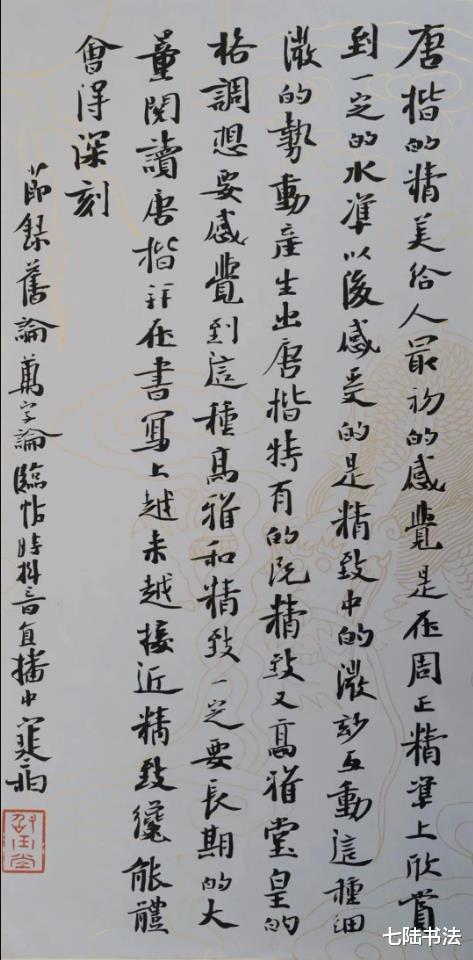 唐楷的精美给人最初的感覺是在周正精準上欣賞
到一定的水準以後感受的是精致中的微妙互動這種細
微的勢動產生出唐楷特有的既精致又高雅堂皇的
格調想要感覺到這種高雅和精致一定要長期的大
量閱讀唐楷并在書寫上越来越接近精致纔能體
會得深刻
節錄舊論萬字論臨帖時抖音直播中寒雨
七陆书法